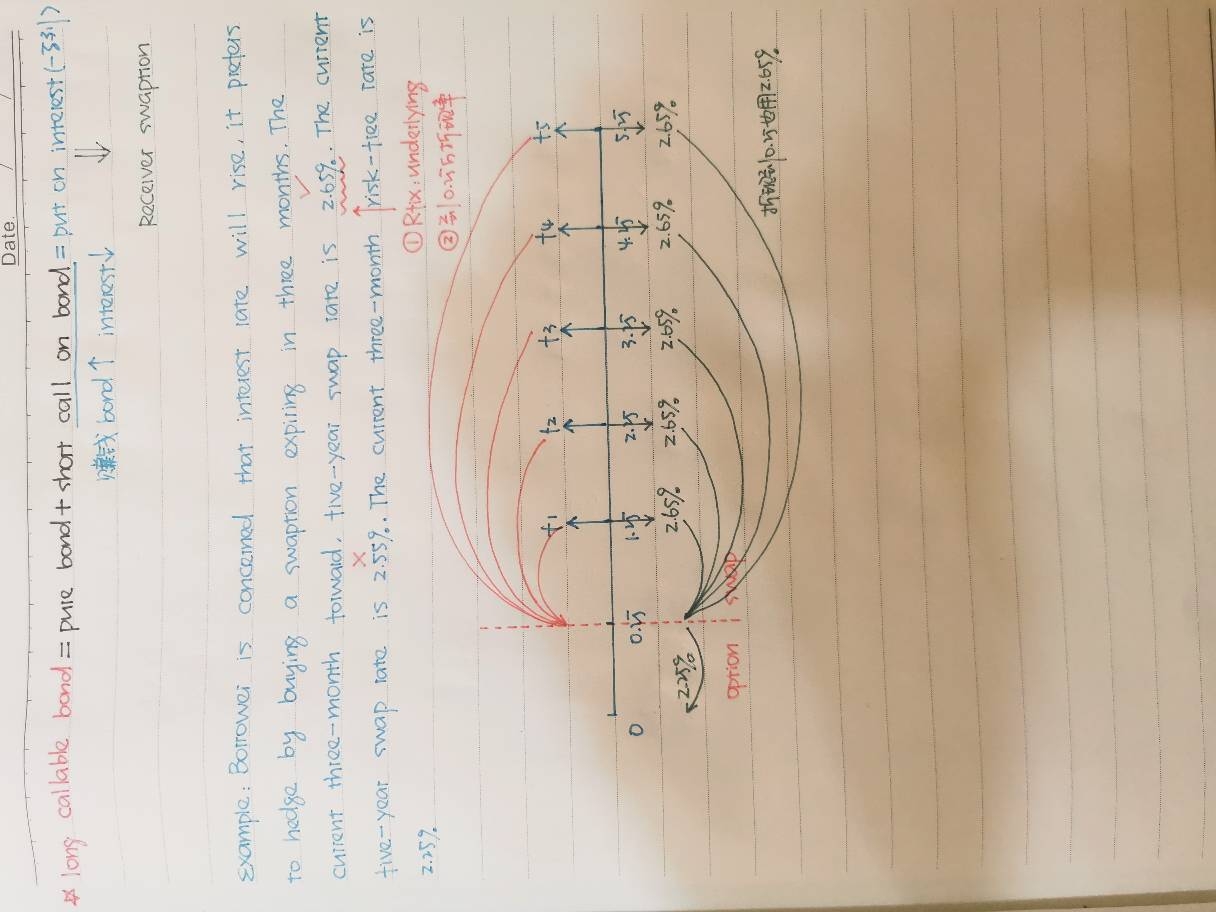 Date. / /
☆ long callable bond = pure bond + short call on bond = put on interest
赚钱 bond↑ interest↓ ⇓
Receiver swaption
Example: Borrower is concerned that interest rate will rise, it prefers
to hedge by buying a swaption expiring in three months. The
current three-month forward, five-year swap rate is 2.65%. The current
five-year swap rate is 2.55%. The current three-month risk-free rate is
2.25%.
① Rfix: underlying
② 折现率
t1 t2 t3 t4 t5
0 0.25 1.25 2.25 3.25 4.25 5.25
2.65% 2.65% 2.65% 2.65% 2.65%
2.25%
option swap
折现到0.25也用2.65%